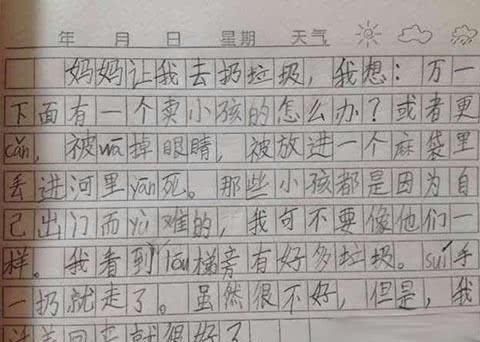 年 月 日 星期 天气
妈妈让我去扔垃圾，我想：万一
下面有一个卖小孩的怎么办？或者更
cǎn，被wā掉眼睛，被放进一个麻袋里
丢进河里yān死。那些小孩都是因为自
己出门而yù难的，我可不要像他们一
样。我看到lóu梯旁有好多垃圾。suí手
一扔就走了。虽然很不好，但是，我
回来就很好了